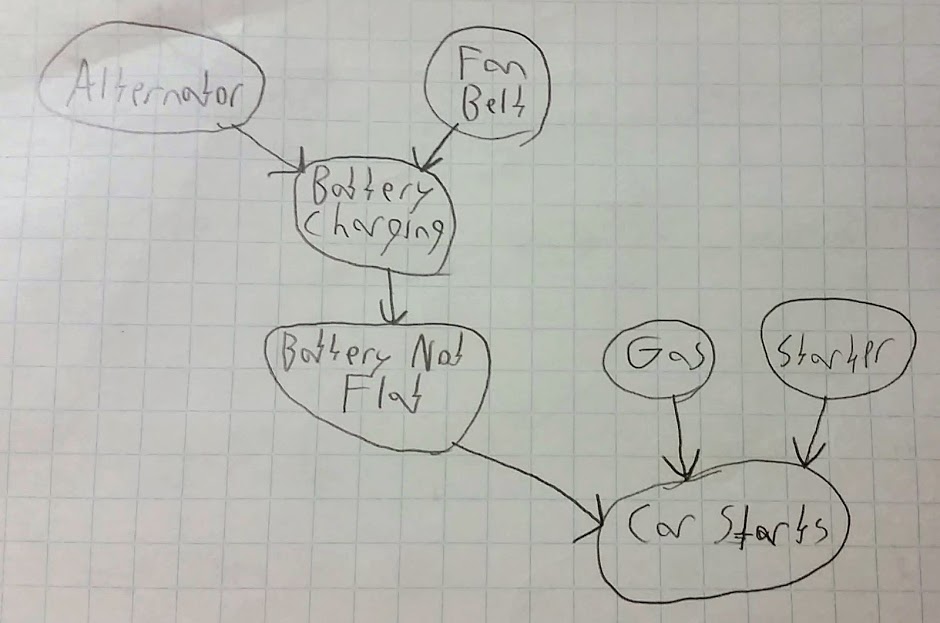 Alternator
Fan
Belt
Battery
Charging
Battery Not
Flat
Gas
Starter
Car Starts